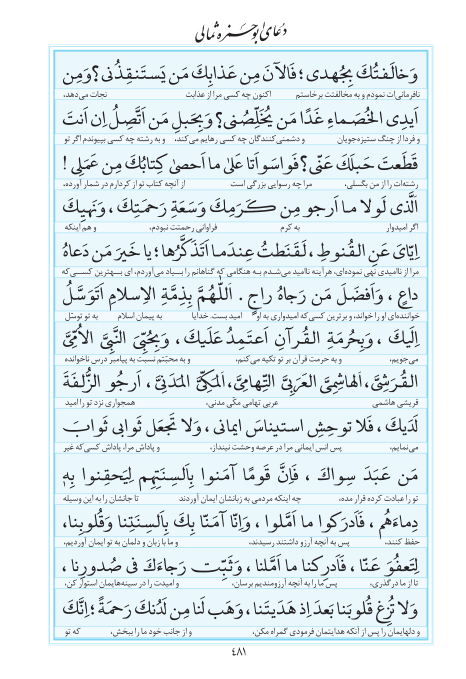 دعای ابوحمزه ثمالی
وَخالَفتُكَ بِجُهدی؛ فَالآنَ مِن عَذابِكَ مَن یَستَنقِذُنی؟ وَمِن
نافرمانی‌ات نمودم و به مخالفتت برخاستم اکنون چه کسی مرا از عذابت نجات می‌دهد،
اَیدِی الخُصَماءِ غَدًا مَن یُخَلِّصُنی؟ وَبِحَبلِ مَن اَتَّصِلُ اِن اَنتَ
و فردا از چنگ ستیزه‌جویان و دشمنی‌کنندگان چه کسی رهایم می‌کند، و به رشته چه کسی بپیوندم اگر تو
قَطَعتَ حَبلَكَ عَنّی؟ فَواسَوأَتا عَلیٰ ما اَحصیٰ كِتابُكَ مِن عَمَلِی!
رشته‌ات را از من بگسلی. مرا چه رسوایی بزرگی است از آنچه کتاب تو از کردارم در شمار آورده،
الَّذی لَولا ما اَرجو مِن كَرَمِكَ وَسَعَةِ رَحمَتِكَ، وَنَهیِكَ
اگر امیدوار به کرم فراوانی رحمتت نبودم، و هم اینکه
اِیّایَ عَنِ القُنوطِ، لَقَنَطتُ عِندَما اَتَذَكَّرُها؛ یا خَیرَ مَن دَعاهُ
مرا از ناامیدی نهی نموده‌ای، هرآینه ناامید می‌شدم به هنگامی که گناهانم را به یاد می‌آوردم، ای بهترین کسی که
داعٍ، وَاَفضَلَ مَن رَجاهُ راجٍ. اَللّٰهُمَّ بِذِمَّةِ الاِسلامِ اَتَوَسَّلُ
خواننده‌ای او را خواند، و برترین کسی که امیدواری به او امید بست. خدایا به پیمان اسلام به تو توسّل
اِلَیكَ، وَبِحُرمَةِ القُرآنِ اَعتَمِدُ عَلَیكَ، وَبِحُبِّی النَّبِیَّ الاُمِّیَّ
می‌جویم، و به حرمت قرآن بر تو تکیه می‌کنم، و به محبّتم نسبت به پیامبر درس ناخوانده
القُرَشِیَّ، الهاشِمِیَّ العَرَبِیَّ التِّهامِیَّ، المَكِّیَّ المَدَنِیَّ، اَرجُو الزُّلفَةَ
قریشی هاشمی عربی تهامی مکّی مدنی، همجواری نزد تو را امید
لَدَیكَ، فَلا توحِشِ استیناسَ ایمانی، وَلا تَجعَل ثَوابی ثَوابَ
می‌نمایم، پس انس ایمانی مرا در عرصه وحشت نینداز، و پاداش مرا، پاداش کسی که غیر
مَن عَبَدَ سِواكَ، فَاِنَّ قَومًا آمَنوا بِاَلسِنَتِهِم لِیَحقِنوا بِهِ
تو را عبادت کرده قرار مده، چه اینکه مردمی به زبانشان ایمان آوردند تا جانشان را به این وسیله
دِماءَهُم، فَاَدرَكوا ما اَمَّلوا، وَاِنّا آمَنّا بِكَ بِاَلسِنَتِنا وَقُلوبِنا،
حفظ کنند. پس به آنچه آرزو داشتند رسیدند، و ما با زبان و دلمان به تو ایمان آوردیم،
لِتَعفُوَ عَنّا، فَاَدرِكنا ما اَمَّلنا، وَثَبِّت رَجاءَكَ فی صُدورِنا،
تا از ما درگذری، پس ما را به آنچه آرزومندیم برسان، و امیدت را در سینه‌هایمان استوار کن،
وَلا تُزِغ قُلوبَنا بَعدَ اِذ هَدَیتَنا، وَهَب لَنا مِن لَدُنكَ رَحمَةً؛ اِنَّكَ
و دلهایمان را پس از آنکه هدایتمان فرمودی گمراه مکن، و از جانب خود ما را ببخش، که تو
۴۸۱